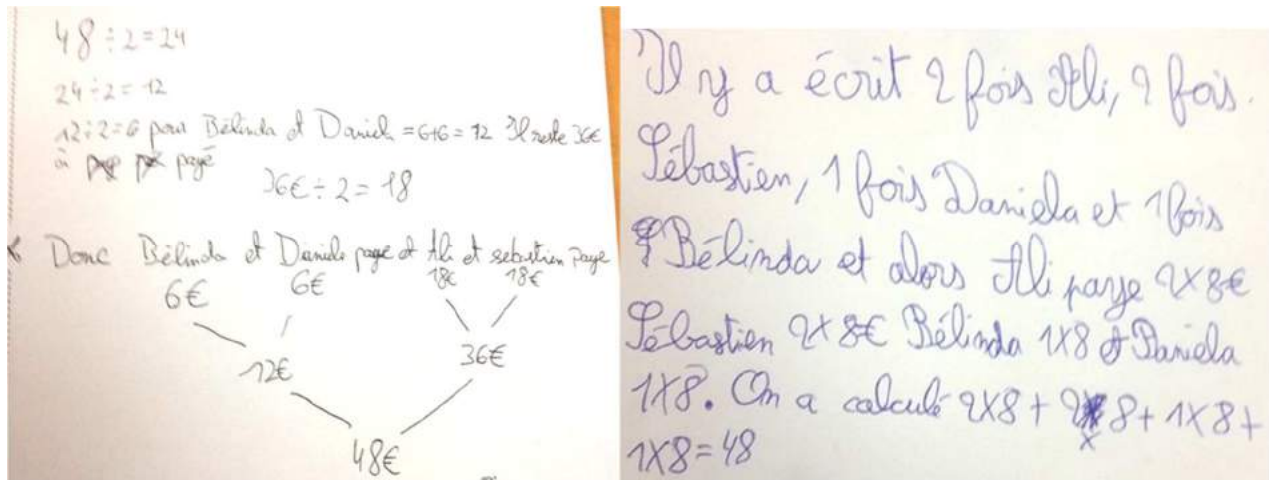 48 ÷ 2 = 24
24 ÷ 2 = 12
12 ÷ 2 = 6 pour Bélinda et Daniela = 6+6 = 12 Il reste 36€
à payé
36€ ÷ 2 = 18
Donc Bélinda et Daniela paye et Ali et sebastien paye
6€ 6€ 18€ 18€
12€ 36€
48€
Il y a écrit 2 fois Ali, 2 fois
Sébastien, 1 fois Daniela et 1 fois
Bélinda et alors Ali paye 2x8€
Sébastien 2x8€ Bélinda 1x8 et Daniela
1x8. On a calculé 2x8 + 2x8 + 1x8 +
1x8 = 48